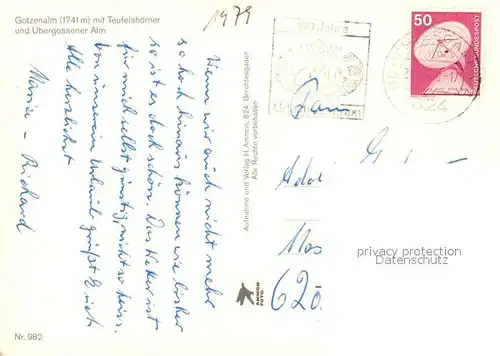 Gotzenalm (1741 m) mit Teufelshörner
und Übergossener Alm
1979
Wenn wir auch nicht mehr
so hoch hinaus können wie bisher
so ist es doch schön. Das Wetter ist
für mich selbst günstig, nicht so heiss.
Von unserem Urlaub grüßt Euch
Alle herzlichst
Richard
Aufnahme und Verlag H. Ammon, 824 Berchtesgaden
Alle Rechte vorbehalten
AMMON
FOTO
Nr. 982
100 Jahre
50
DEUTSCHE BUNDESPOST
824
Fam
620
privacy protection
Datenschutz